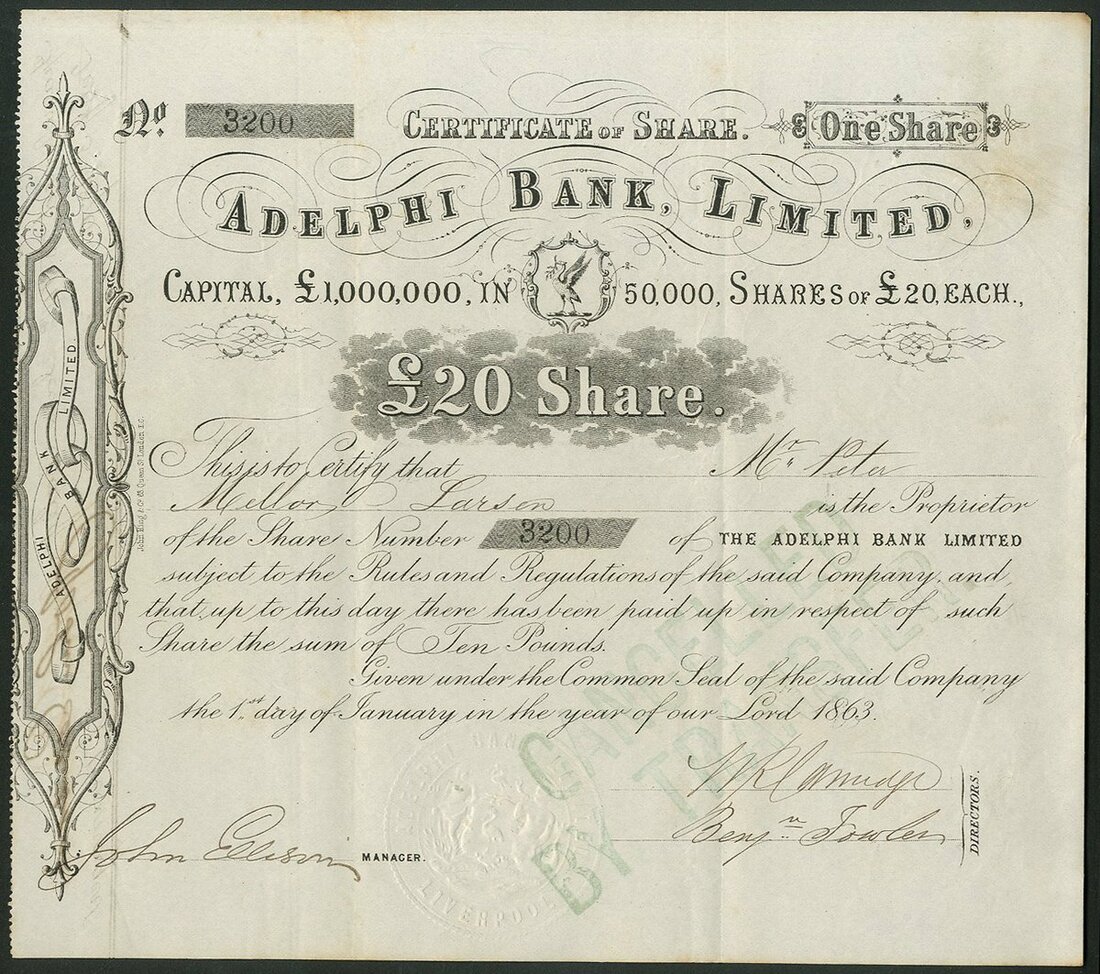 No. 3200 CERTIFICATE OF SHARE. One Share
ADELPHI BANK, LIMITED,
CAPITAL, £1,000,000, IN 50,000, SHARES OF £20, EACH.,
£20 Share.
This is to Certify that Mr. Peter
Mellor Larson is the Proprietor
of the Share Number 3200 of THE ADELPHI BANK LIMITED
subject to the Rules and Regulations of the said Company, and,
that, up to this day there has been paid up in respect of such
Share the sum of Ten Pounds.
Given under the Common Seal of the said Company
the 1st day of January in the year of our Lord 1863.
Benjn Fowler
DIRECTORS.
John Elison MANAGER.
ADELPHI BANK LIMITED
CANCELLED
BY TRANSFER
BANK
LIVERPOOL